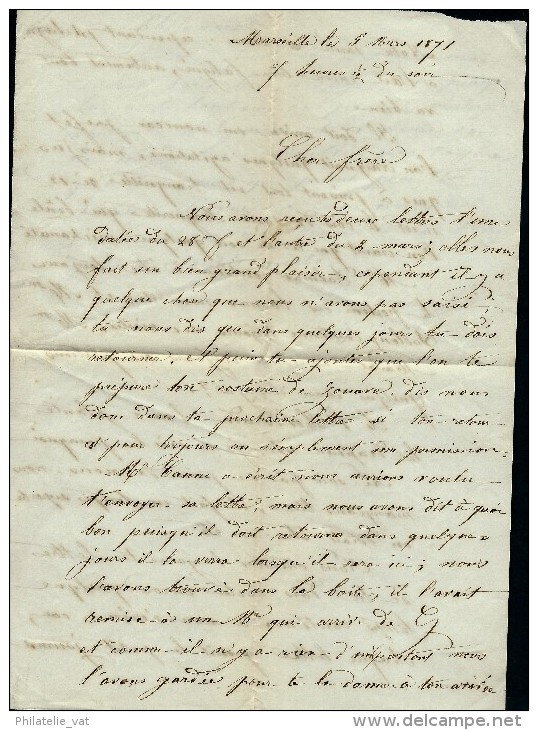 Marseille les 5 Mars 1871
7 heures ½ du soir
Cher frère
Nous avons recus deux lettres l'une
datée du 28 f et l'autre du 2 mars; elles nous
fait un bien grand plaisir, cependant il y a
quelque chose que nous n'avons pas saisi;
tu nous dis que dans quelques jours tu dois
retourner. Et puis tu ajoute que l'on te
prepare ton costume de zouave dis nous
donc dans ta prochaine lettre si ton retour
est pour toujours ou simplement une permission
Mr a écrit nous aurions voulu
t'envoyer sa lettre, mais nous avons dit à quoi
bon puisqu'il doit retourner dans quelque
jours il la verra lorsqu'il sera ici; nous
l'avons trouvée dans la boite, il l'avait
remise à un Mr qui arriv. de G
et comme il n'y a rien d'important nous
l'avons gardée pour te la donner à ton arrivée
Philatelie_vat
www.delcampe.net